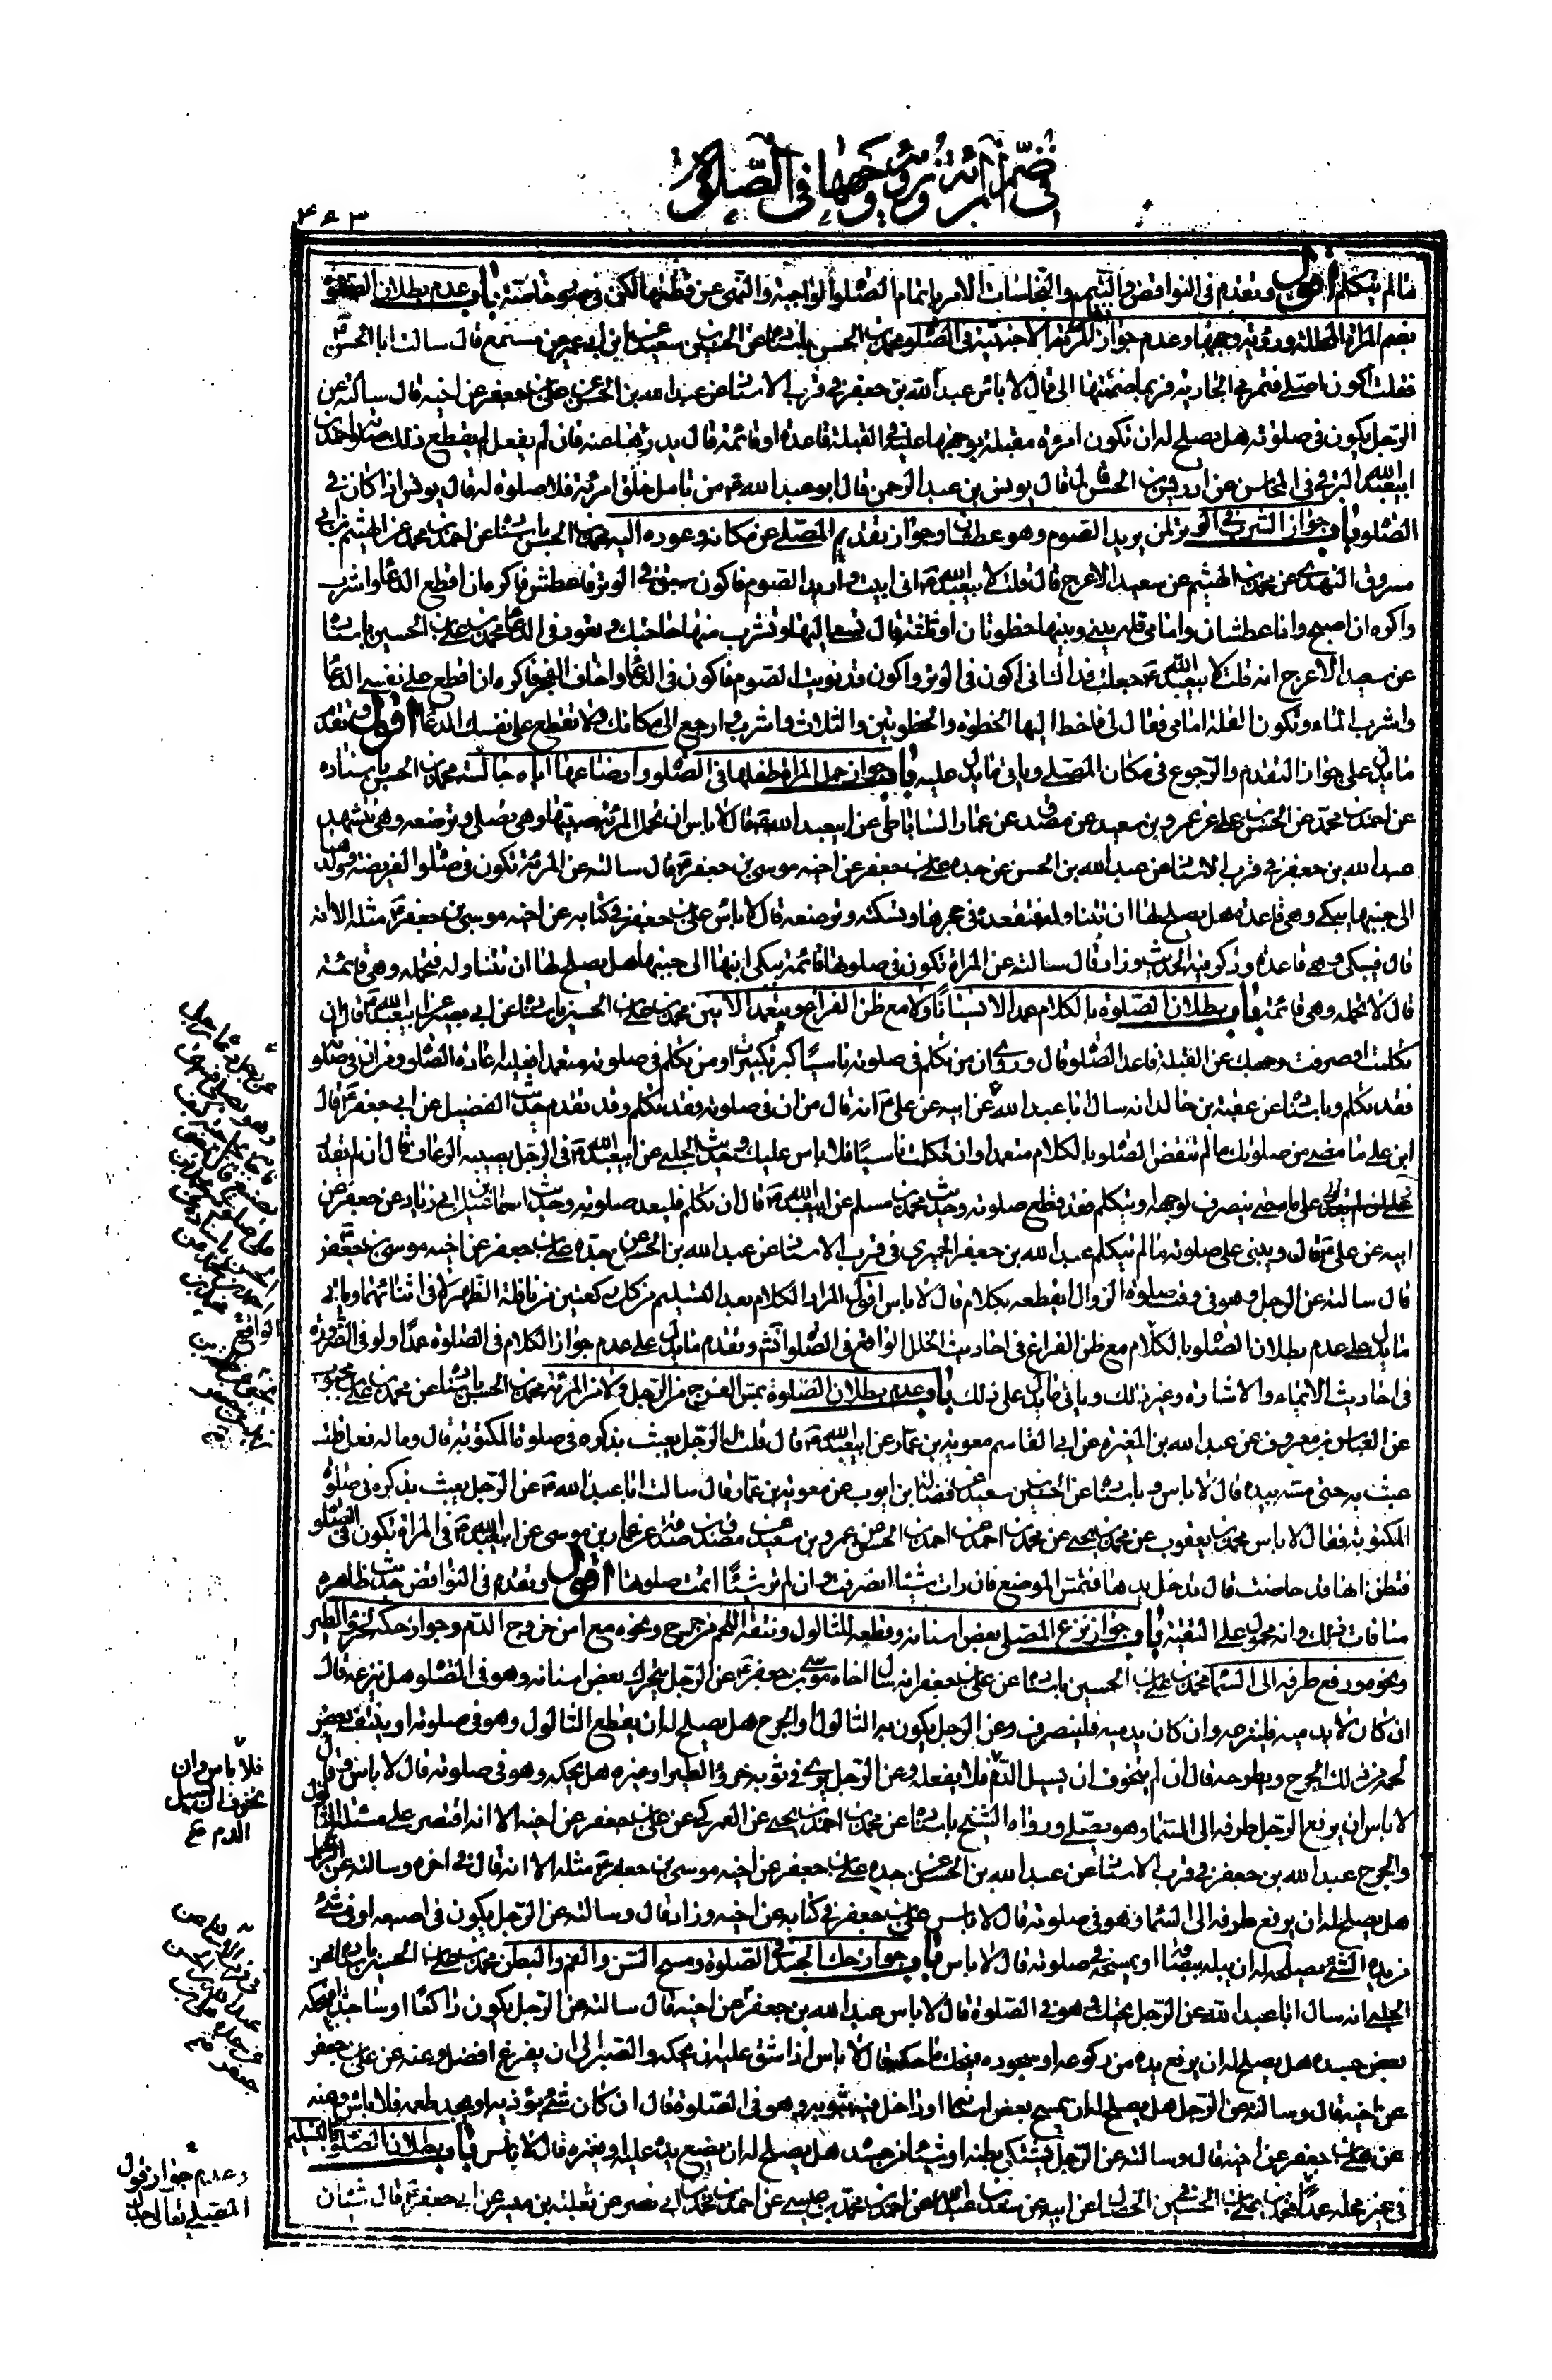 في ضم المرئة ورؤية وجهها في الصلوة
٤٦٣
ما لم يتكلم اقول وتقدم في النواقض والتيمم والنجاسات الامر باتمام الصلوة الواجبة والنهي عن قطعها لكن في صور خاصة باب عدم بطلان الصلوة
بضم المراة المحللة ورؤية وجهها وعدم جواز الاجنبية في الصلوة محمد بن الحسن باسناده عن الحسين بن سعيد عن ابن ابي عمير عن مسمع قال سالت ابا الحسن ع
فقلت اكون اصلي فتمر بي الجارية فربما ضممتها الي قال لا باس عبد الله بن جعفر في قرب الاسناد عن عبد الله بن الحسن عن علي بن جعفر عن اخيه قال سالته عن
الرجل يكون في صلوته هل يصلح له ان تكون امرءة مقبلة بوجهها عليه في القبلة قاعدة او قائمة قال يدرؤها عنه فان لم يفعل لم يقطع ذلك صلوته احمد بن
ابي عبد الله البرقي في المحاسن عن ادريس بن الحسن قال قال يونس بن عبد الرحمن قال ابو عبد الله ع من تامل خلف امرئة فلا صلوة له قال يونس اذا كان في
الصلوة باب جواز الشرب في الوتر لمن يريد الصوم وهو عطشان وجواز تقدم المصلي عن مكانه وعوده اليه محمد بن الحسن باسناده عن احمد بن محمد عن الهيثم بن ابي
مسروق النهدي عن محمد بن الهيثم عن سعيد الاعرج قال قلت لابي عبد الله ع اني ابيت واريد الصوم فاكون في الوتر فاعطش فاكره ان اقطع الدعا واشرب
واكره ان اصبح وانا عطشان وامامي قلة بيني وبينها خطوتان او ثلثة قال تسعى اليها وتشرب منها حاجتك وتعود في الدعا محمد بن علي بن الحسين باسناده
عن سعيد الاعرج انه قال قلت لابي عبد الله ع جعلت فداك اني اكون في الوتر واكون قد نويت الصوم فاكون في الدعا واخاف الفجر فاكره ان اقطع على نفسي الدعا
واشرب الماء وتكون القلة امامي فقال لي فاخط اليها الخطوة والخطوتين والثلاث واشرب وارجع الى مكانك ولا تقطع على نفسك الدعا اقول وتقدم
ما يدل على جواز التقدم والرجوع في مكان المصلي وياتي ما يدل عليه باب جواز حمل المراة طفلها في الصلوة وارضاعها اياه جالسة محمد بن الحسن باسناده
عن احمد بن محمد عن الحسن بن علي عن عمرو بن سعيد عن مصدق عن عمار الساباطي عن ابي عبد الله ع قال لا باس ان تحمل المرئة صبيها وهي تصلي وترضعه وهي تتشهد
عبد الله بن جعفر في قرب الاسناد عن عبد الله بن الحسن عن جده علي بن جعفر عن اخيه موسى بن جعفر ع قال سالته عن المرئة تكون في صلوة الفريضة وولدها
الى جنبها يبكي وهي قاعدة هل يصلح لها ان تتناوله فتقعده في حجرها وتسكته وترضعه قال لا باس علي بن جعفر في كتابه عن اخيه موسى بن جعفر ع مثله الا انه
قال فيبكي وهي قاعدة وذكر بقية الحديث وزاد قال سالته عن المراة تكون في صلوتها قائمة يبكي ابنها الى جنبها هل يصلح لها ان تتناوله فتحمله وهي قائمة
قال لا تحمله وهي قائمة باب بطلان الصلوة بالكلام عمدا لا نسيانا ولا مع ظن الفراغ وبتعمد الانين محمد بن علي بن الحسين باسناده عن ابي بصير عن ابي عبد الله ع قال ان
تكلمت او صرفت وجهك عن القبلة فاعد الصلوة قال وروي ان من تكلم في صلوته ناسيا كبر تكبيرات ومن تكلم في صلوته متعمدا فعليه اعادة الصلوة ومن ان في صلوته
فقد تكلم وباسناده عن عقبة بن خالد انه سال ابا عبد الله عن ابيه عن علي ع انه قال من ان في صلوته فقد تكلم وقد تقدم حديث الفضيل عن ابي جعفر ع قال
ابن على ما مضى من صلوتك ما لم تنقض الصلوة بالكلام متعمدا وان تكلمت ناسيا فلا باس عليك وحديث الحلبي عن ابي عبد الله ع في الرجل يصيبه الرعاف قال ان لم يقدر
على ما مضى ينصرف لوجهه او يتكلم فقد قطع صلوته وحديث محمد بن مسلم عن ابي عبد الله ع قال ان تكلم فليعد صلوته وحديث اسماعيل بن ابي زياد عن جعفر عن
ابيه عن علي ع قال ويبني على صلوته ما لم يتكلم عبد الله بن جعفر الحميري في قرب الاسناد عن عبد الله بن الحسن عن جده علي بن جعفر عن اخيه موسى بن جعفر
قال سالته عن الرجل وهو في وقت صلوة الزوال ايقطعه بكلام قال لا باس اقول المراد الكلام بعد التسليم من كل ركعتين من نافلة الظهر لا في اثنائهما وياتي
ما يدل على عدم بطلان الصلوة بالكلام مع ظن الفراغ في احاديث الخلل الواقع في الصلوة وتقدم ما يدل على عدم جواز الكلام في الصلوة عمدا ولو في الضرورة
في احاديث الايماء والاشارة وغير ذلك وياتي ما يدل على ذلك باب عدم بطلان الصلوة بمس الفرج من الرجل ولا من المرئة محمد بن الحسن باسناده عن محمد بن علي بن محبوب
عن العباس بن معروف عن عبد الله بن المغيرة عن ابي القاسم معوية بن عمار عن ابي عبد الله ع قال قلت له الرجل يعبث بذكره في صلوة المكتوبة قال وما له فعل قلت
عبث به حتى مسه بيده قال لا باس وباسناده عن الحسين بن سعيد عن فضالة بن ايوب عن معوية بن عمار قال سالت ابا عبد الله ع عن الرجل يعبث بذكره في صلوة
المكتوبة فقال لا باس محمد بن يعقوب عن محمد بن يحيى عن محمد بن احمد عن احمد بن الحسن عن عمرو بن سعيد عن مصدق بن صدقة عن عمار بن موسى عن ابي عبد الله ع في المراة تكون في الصلوة
فتظن انها قد حاضت قال تدخل يدها فتمس الموضع فان رات شيئا انصرفت وان لم تر شيئا اتمت صلوتها اقول وتقدم في النواقض حديث ظاهره
منافات ذلك وانه محمول على التقية باب جواز نزع المصلي بعض اسنانه وقطعه للثالول ونتفه اللحم من جرح ونحوه مع امن خروج الدم وجواز حكه لخرؤ الطير
ونحوه ورفع طرفه الى السما محمد بن علي بن الحسين باسناده عن علي بن جعفر انه سال اخاه موسى بن جعفر ع عن الرجل يتحرك بعض اسنانه وهو في الصلوة هل ينزعه قال
ان كان لا يدميه فلينزعه وان كان يدميه فلينصرف وعن الرجل يكون به الثالول او الجرح هل يصلح له ان يقطع الثالول وهو في صلوته او ينتف بعض
لحمه من ذلك الجرح ويطرحه قال ان لم يتخوف ان يسيل الدم فلا يفعله وعن الرجل يرى في ثوبه خرؤ الطير او غيره هل يحكه وهو في صلوته قال لا باس وقال
لا باس ان يرفع الرجل طرفه الى السما وهو يصلي ورواه الشيخ باسناده عن محمد بن احمد بن يحيى عن العمركي عن علي بن جعفر عن اخيه الا انه اقتصر على مسئلة الثالول
والجرح عبد الله بن جعفر في قرب الاسناد عن عبد الله بن الحسن عن جده علي بن جعفر عن اخيه موسى بن جعفر ع مثله الا انه قال في اخره وسالته عن الرجل
هل يصلح له ان يرفع طرفه الى السماء وهو في صلوته قال لا باس علي بن جعفر في كتابه عن اخيه وزاد قال وسالته عن الرجل يكون في اصبعه او في شئ
من يده الشئ ليصلحه له ان يبله ببصاقه او يمسحه في صلوته قال لا باس باب جواز حك الجسد في الصلوة ومسح السن والفم والبطن محمد بن علي بن الحسين باسناده عن
الحلبي انه سال ابا عبد الله عن الرجل يحتك وهو في الصلوة قال لا باس عبد الله بن جعفر عن اخيه قال سالته عن الرجل يكون راكعا او ساجدا فيحكه
بعض جسده هل يصلح له ان يرفع يده من ركوعه او سجوده فيحك ما حكه قال لا باس اذا شق عليه ان يحكه والصبر الى ان يفرغ افضل وعنه عن علي بن جعفر
عن اخيه قال وسالته عن الرجل هل يصلح له ان يمسح بعض اسنانه او داخل فيه بثوبه وهو في الصلوة قال ان كان شئ يؤذيه او يجد طعمه فلا باس وعنه
عن علي بن جعفر عن اخيه قال وسالته عن الرجل يشتكي بطنه او شيئا من جسده هل يصلح له ان يضع يده عليه او يغمزه قال لا باس باب بطلان الصلوة بالتسليم
في غير محله عمدا محمد بن علي بن الحسين في الخصال عن ابيه عن سعد بن عبد الله عن احمد بن محمد بن عيسى عن احمد بن محمد بن ابي نصر عن ثعلبة بن ميمون عن ميسر عن ابي جعفر ع قال شيئان
فلا باس وان
تخوف ان يسيل
الدم
وعدم جواز قول
المصلي تعالى جدك